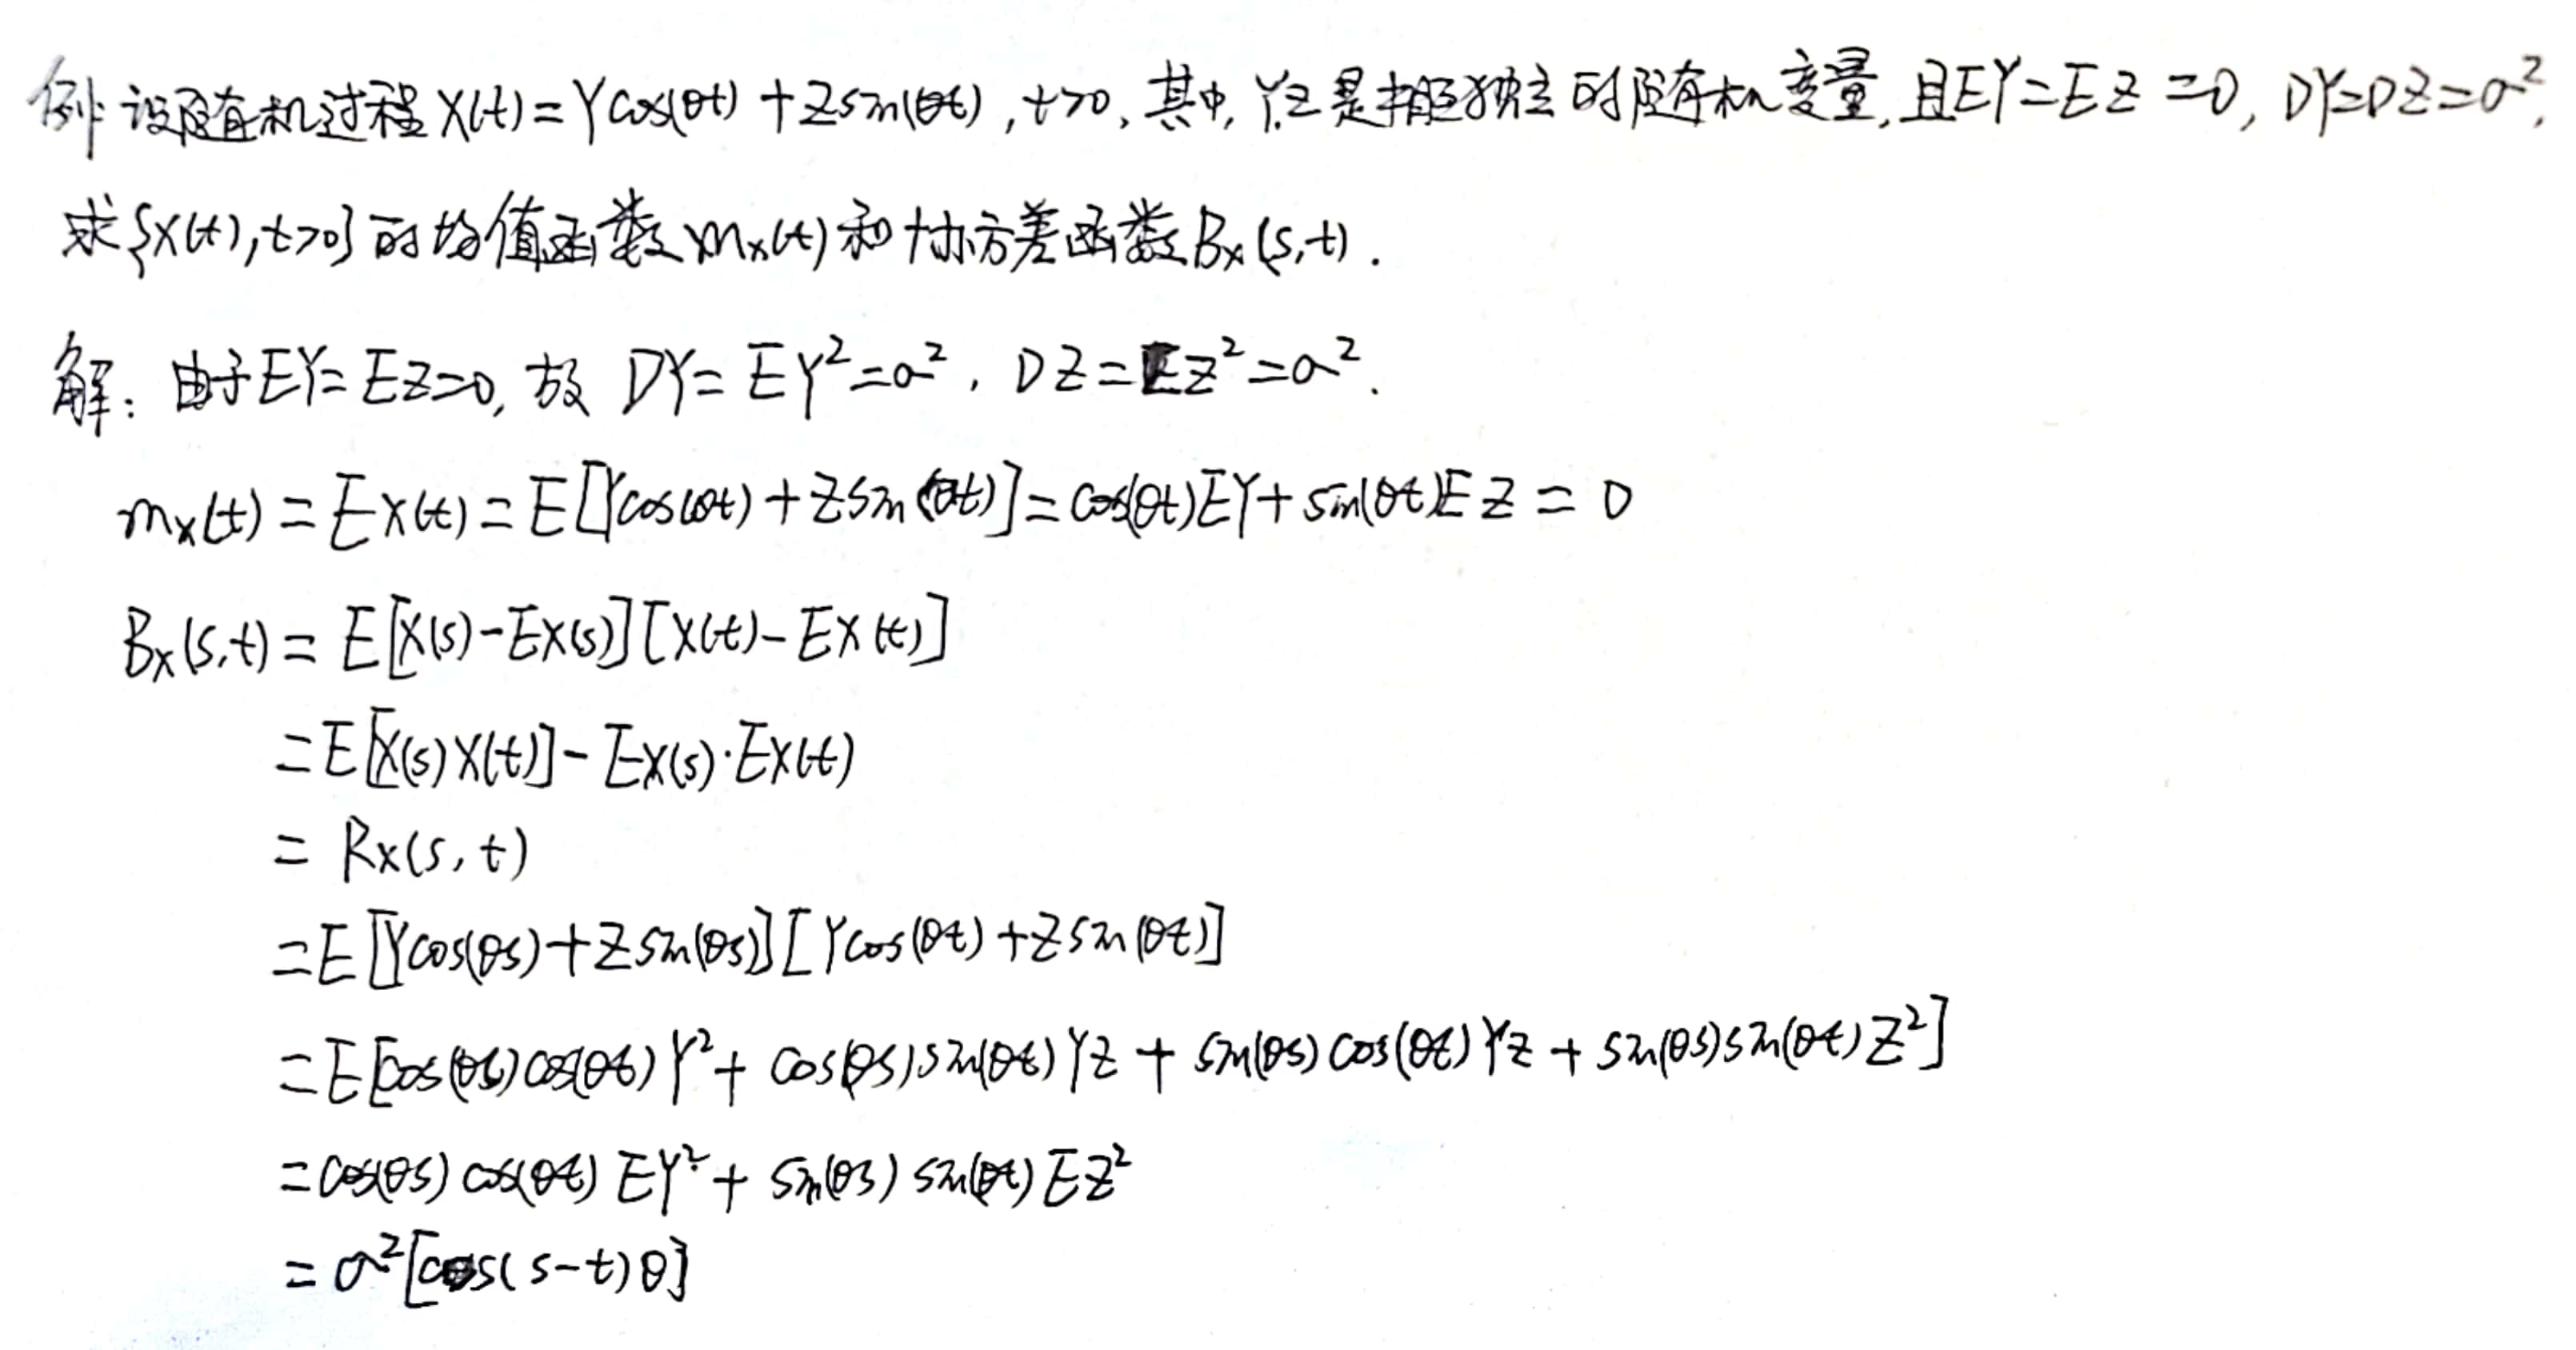 例:设随机过程X(t)=Ycos(θt)+Zsin(θt),t>0,其中,Y,Z是相互独立的随机变量,且EY=EZ=0,DY=DZ=σ²,
求{X(t),t>0}的均值函数mₓ(t)和协方差函数Bₓ(s,t).
解:由于EY=EZ=0,故 DY=EY²=σ²,DZ=EZ²=σ².
mₓ(t)=EX(t)=E[Ycos(θt)+Zsin(θt)]=cos(θt)EY+sin(θt)EZ=0
Bₓ(s,t)=E[X(s)-EX(s)][X(t)-EX(t)]
=E[X(s)X(t)]-EX(s)·EX(t)
=Rₓ(s,t)
=E[Ycos(θs)+Zsin(θs)][Ycos(θt)+Zsin(θt)]
=E[cos(θs)cos(θt)Y²+cos(θs)sin(θt)YZ+sin(θs)cos(θt)YZ+sin(θs)sin(θt)Z²]
=cos(θs)cos(θt)EY²+sin(θs)sin(θt)EZ²
=σ²[cos(s-t)θ]